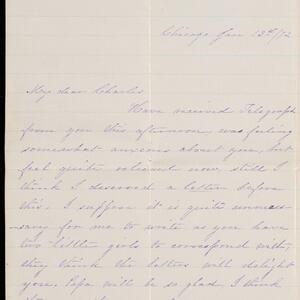 Chicago Jan 13th/72
My dear Charles
Have received Telegraph
from you this afternoon, was feeling
somewhat anxious about you, but
feel quite relieved now, still I
think I deserved a letter before
this. I suppose it is quite unneces-
sary for me to write as you have
two little girls to correspond with,
they think the letters will delight
you. Papa will be so glad. I think